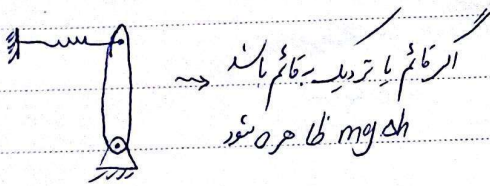 اگر قائم یا نزدیک به قائم باشد
mgΔh ظاهر ه شود